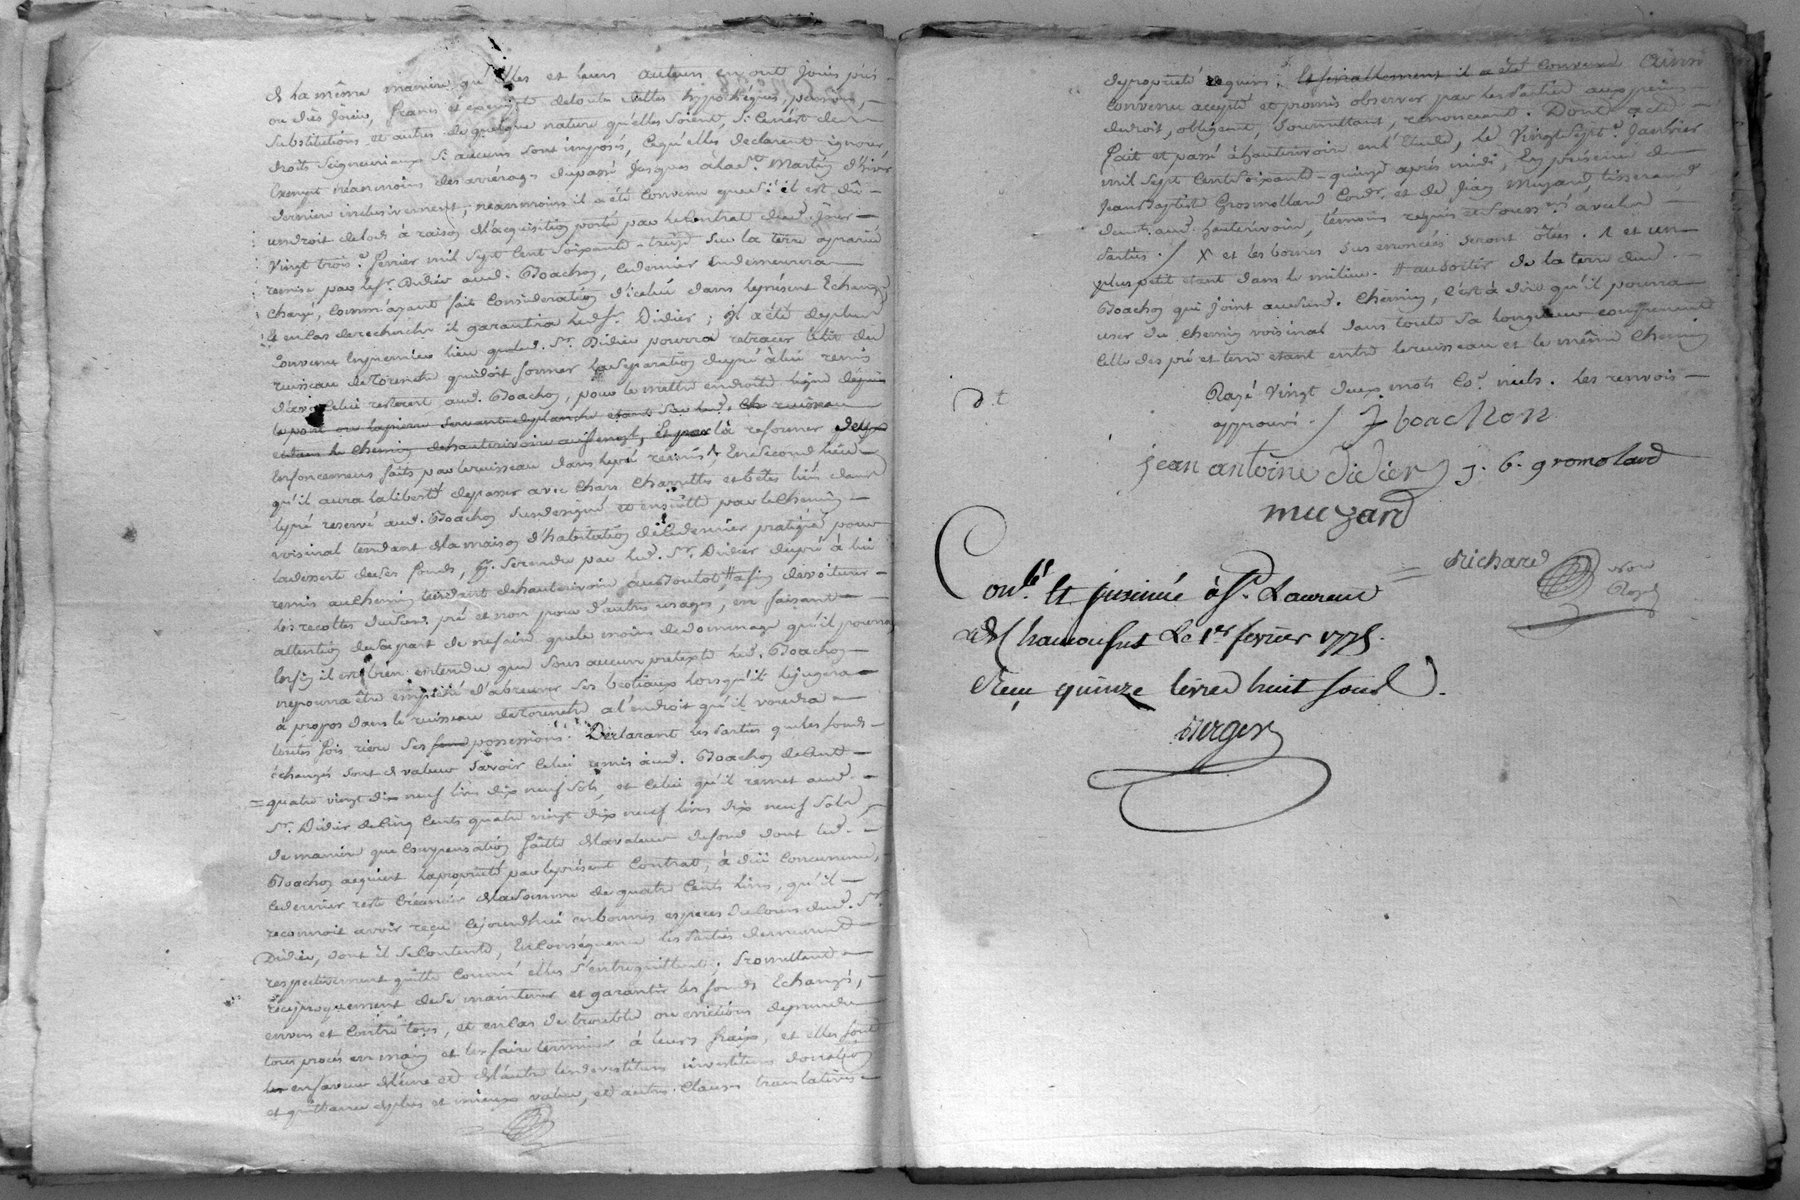 de la même maniere qu'elles et leurs auteurs en ont joui pus
ou dus jouir, francs et exempts de toutes dettes hypotheques, pensions,
substitutions et autres de quelque nature qu'elles soient, Si Cen'est des
droits Seigneuriaux Si aucuns sont imposés, Cequ'elles declarent ignorer,
Exempts néanmoins des arrérages dupassé Jusques alas.t Martin d'hiver
dernier inclusivement; néanmoins il a été Convenu que S'il est dû
undroit delods à raison del'acquisition porté par le Contrat dud. jour
Vingt trois.e fevrier mil Sept Cent Soixante-treize Sur la terre
remise par leSr. Didier aud. Boachon, cedernier Endemeurera
Chargé, Comm'ayant fait Consideration d'icelui dans leprésent Echange
Et encas derecherche il garantira led. Sr. Didier; Il a été deplus
Convenu Enpremier lieu queled. Sr. Didier pourra retracer le lit du
ruisseau deTorenche quidoit former laSeparation dupré à lui remis
d'avec Celui restant aud. Boachon, pour le mettre endroite ligne depuis
le pont ou lapierre Servant deplanche etant Sur led. ruisseau
etdans le Chemin dehauterivoire aussenget, Et par là reformer deux
Enfoncemens faits par leruisseau dans lepré remis; EnSecond lieu
qu'il aura laliberté depasser avec Chars Charrettes et bêtes liés dans
lepré reservé aud. Boachon Susdesigné et ensuitte par leChemin
voisinal tendant alamaison d'habitation decedernier pratiqué pour
ladesserte deses fonds, Serendre par led. Sr. Didier dupré à lui
remis auChemin tendant dehauterivoire # afin devoiturer
les recoltes dud. pré et non pour d'autres usages, en faisant
attention desapart de nefaire quele moins dedommage qu'il pourra
Enfin il est bien entendu que Sous aucun pretexte led. Boachon
nepourra être empêché d'abreuver Ses bestiaux lorsqu'il lejugera
à propos dans le ruisseau deTorenche al'endroit qu'il voudra
toutes fois riere Ses fond possessions. Declarant lesParties queles fonds
échangés sont de valeur Savoir Celui remis aud. Boachon deCent
quatre vingt dix neuf livres dix neuf Sols, et Celui qu'il remet aud.
Sr. Didier deCinq Cents quatre vingt dix neuf livres dix neuf Sols,
de maniere que Compensation faitte delavaleur dufond dont led.
Boachon acquiert lapropriété par leprésent Contrat, à düe Concurrence,
cedernier reste Créancier delasomme de quatre Cents livres, qu'il
reconnoit avoir reçu cejourd'hui enbonnes especes du Cours dud. Sr.
Didier, dont il Se Contente, Enconséquence lesParties demeurent
respectivement quitte Comme elles S'entrequittent; Promettant
réciproquement dese maintenir et garantir les fonds Echangés,
envers et Contre tous, et encas de trouble ou evictions deprendre
tous procés en main et les faire terminer à leurs frais, et elles font
les enfaveur del'une et del'autre lesdevestitures investitures donation
et quittance deplus et mieux value, et autres Clauses translatives
depropriété requises. Et finallement il a été Convenu Ainsi
Convenu accepté et promis observer par les Parties aux peines
dedroit, obligeant, Soumettant, renonceant. Dont acte
fait et passé à hauterivoire enl'Etude, le Vingt Sept.e Janvier
mil Sept CentSoixante-quinze aprés midi, En présence de
JeanBaptiste Gromolland Cord.r et de Jean Muzard, tisserand
demt. aud. hauterivoire, témoins requis et Soussignés avec les
Parties. / X et les bornes Sus enoncées seront ôtées. Λ et un
plus petit etant dans le milieu. # ausortir de la terre dud.
Boachon qui joint audevd. Chemin, C'est à dire qu'il pourra
user du Chemin voisinal dans toute Sa longueur
Celle des pré et terre etant entre leruisseau et le même Chemin
Rayé Vingt deux mots Co.e nuls. les renvois
approuvé /. J boachon
D. t
jean antoine didier j. b. gromolard
muzard
Richard
Non
Royal
Con.lé Et jnsinué à St. Laurent
de Chamousset Le 1er. fevrier 1775.
Reçu quinze livres huit sous.
Berger